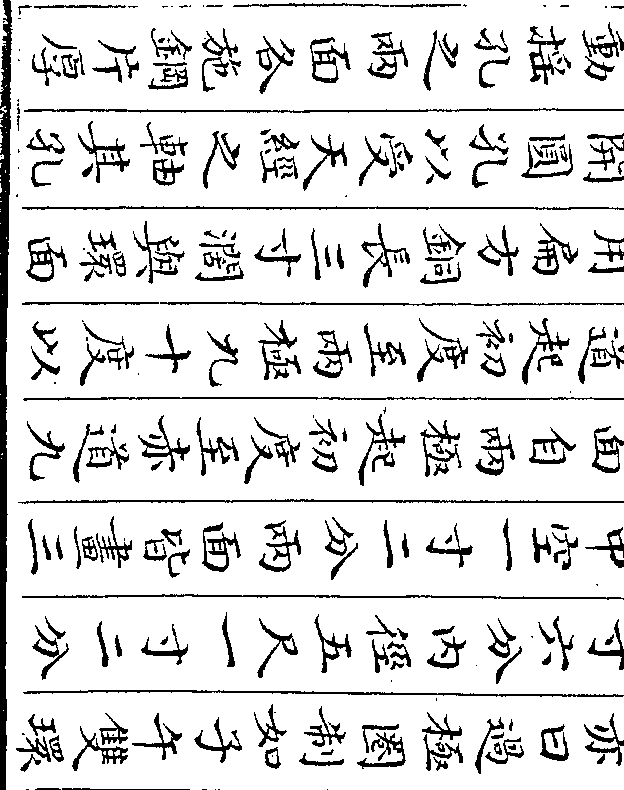 亦曰過極圈制如子午雙環
寸六分內徑五尺一寸二分
中空一寸二分兩面皆畫三
面自兩極起初度至赤道九
道起初度至兩極九十度以
用扁方銅長三寸闊與環面
開圓孔以受天經之軸其孔
動搖孔之兩面各施鋼片厚